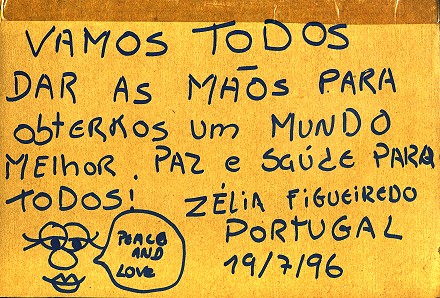 VAMOS TODOS
DAR AS MÃOS PARA
obTERMOS um MUNDO
MElhoR, PAZ e SAÚDE PARA
TODOS! ZÉLIA FIGUEIREDO
PORTUGAL
19/7/96
PEACE
AND
LOVE